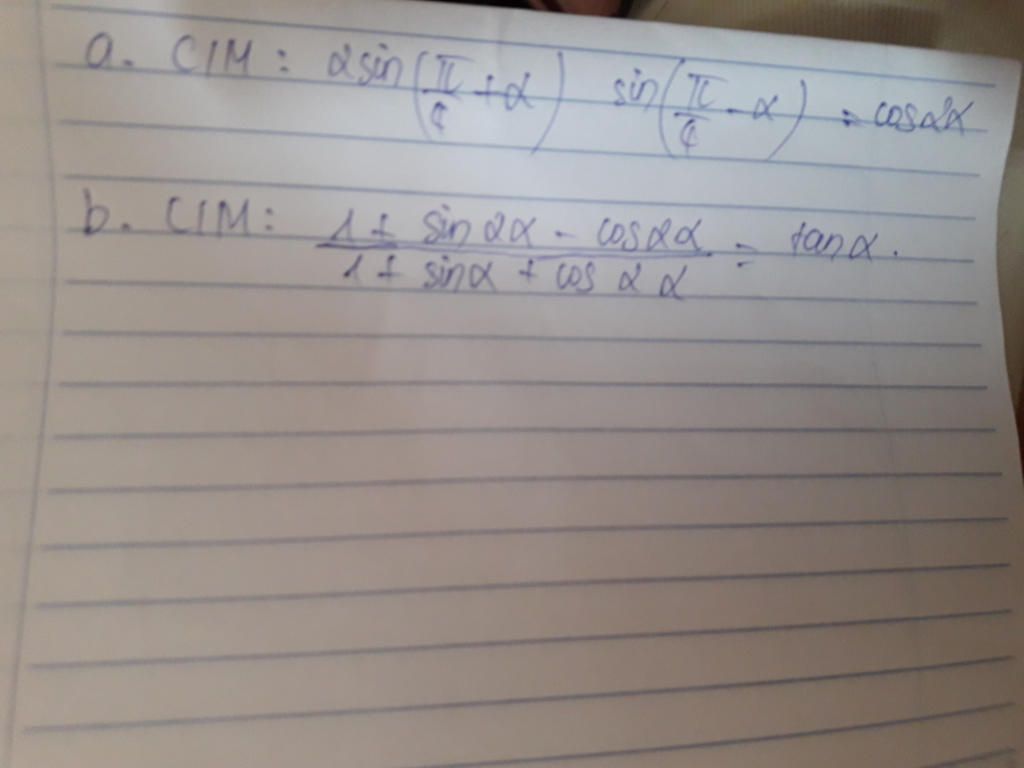 a. C/M: 2sin(π/4 + α) sin(π/4 - α) = cos2α
b. C/M: (1 + sin2α - cos2α)/(1 + sinα + cos2α) = tanα.